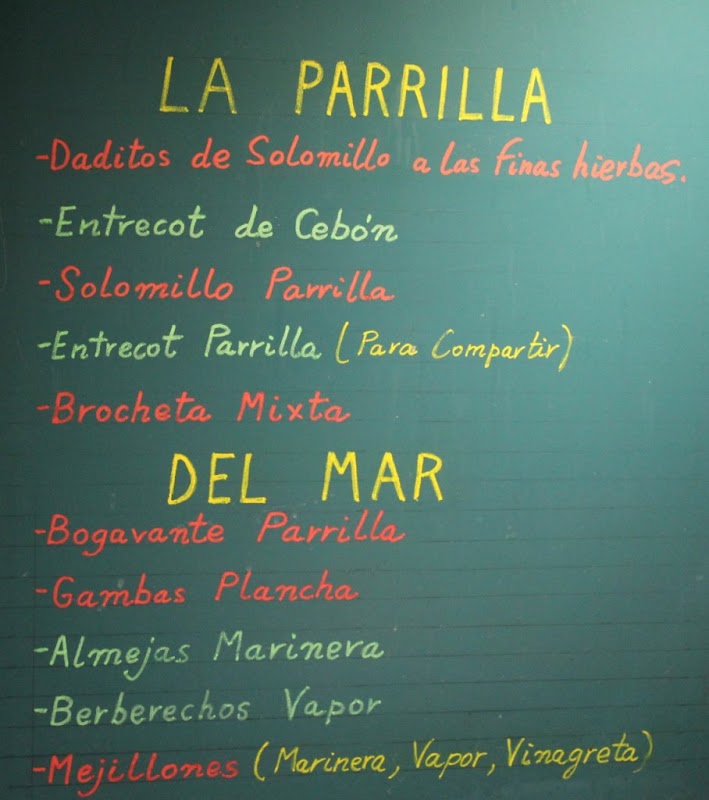 LA PARRILLA
-Daditos de Solomillo a las finas hierbas.
-Entrecot de Cebón
-Solomillo Parrilla
-Entrecot Parrilla (Para Compartir)
-Brocheta Mixta
DEL MAR
-Bogavante Parrilla
-Gambas Plancha
-Almejas Marinera
-Berberechos Vapor
-Mejillones (Marinera, Vapor, Vinagreta)